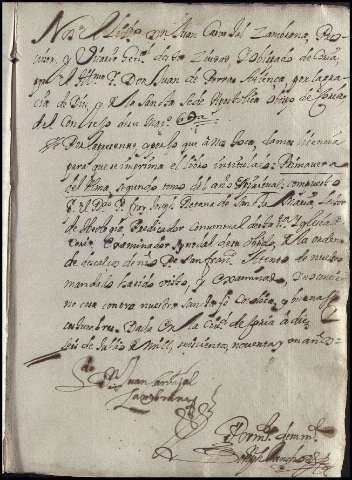 Nos el Liz.do Don Juan Carvajal Zambrana, Pro-
visor, y Vicario Gen.l de esta Ciudad, y Obispado de Coria,
por el Ill.mo S.r Don Juan de Porras Atienza, por la gra-
cia de Dios, y de la Santa Sede Apostolica Obispo de Coria
del Consejo de su Mag.d &c.
Por la presente, y por lo que à Nos toca, damos licencia
para que se imprima el libro intitulado: Primavera
del Alma, segundo tomo del año Spiritual, compuesto
P. el R.do P. Fray
de Theologia Predicador conventual
Examinador Synodal deste Obispado, de la orden
de descalços de N. S. P. San Fran.co Atento de nuestro
mandado ha sido visto, y examinado, y no contie-
ne cosa contra nuestra santa Fè Catolica, y buenas
costumbres. Dada en la Ciudad de Coria à diez
y seis de Julio de Mill, seiscientos, noventa y un años-
Juan Carvajal
Zambrana
Por m.do de su m.d
Joseph Sanchez